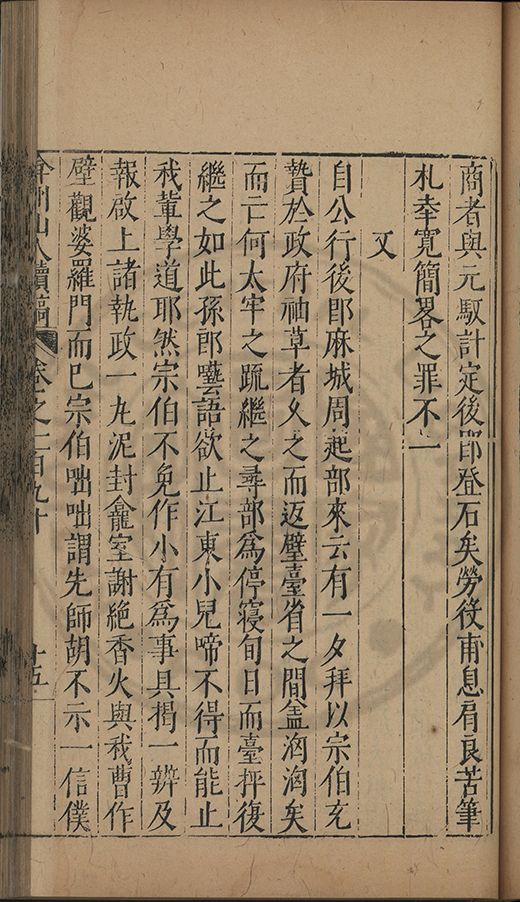 商者與元馭計定後即登石矣勞役甫息肩良苦筆
札幸寬簡畧之罪不一
又
自公行後即麻城周起部來云有一夕拜以宗伯充
贄於政府袖草者久之而返壁臺省之間盆洶洶矣
而亡何太牢之疏繼之尋部為停寢旬日而臺抨復
繼之如此孫郎囈語欲止江東小兒啼不得而能止
我輩學道耶然宗伯不免作小有為事具揭一辨及
報啟上諸執政一丸泥封龕室謝絶香火與我曹作
壁觀婆羅門而已宗伯咄咄謂先師胡不示一信僕
弇州山人續稿 卷之一百九十 十五